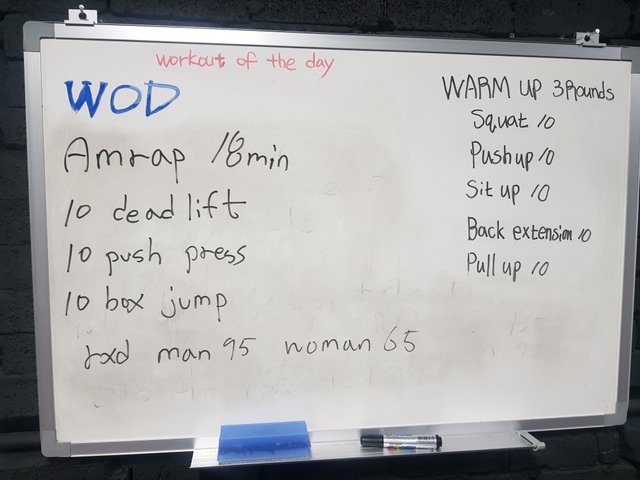 workout of the day
WOD
Amrap 18min
10 dead lift
10 push press
10 box jump
rxd man 95 woman 65
WARM UP 3Rounds
Squat 10
Push up 10
Sit up 10
Back extension 10
Pull up 10